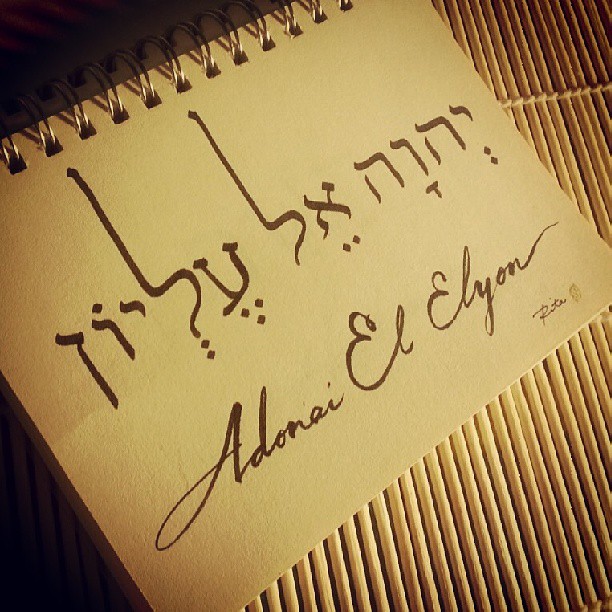 יְהוָה אֵל עֶלְיוֹן
Adonai El Elyon
Rita